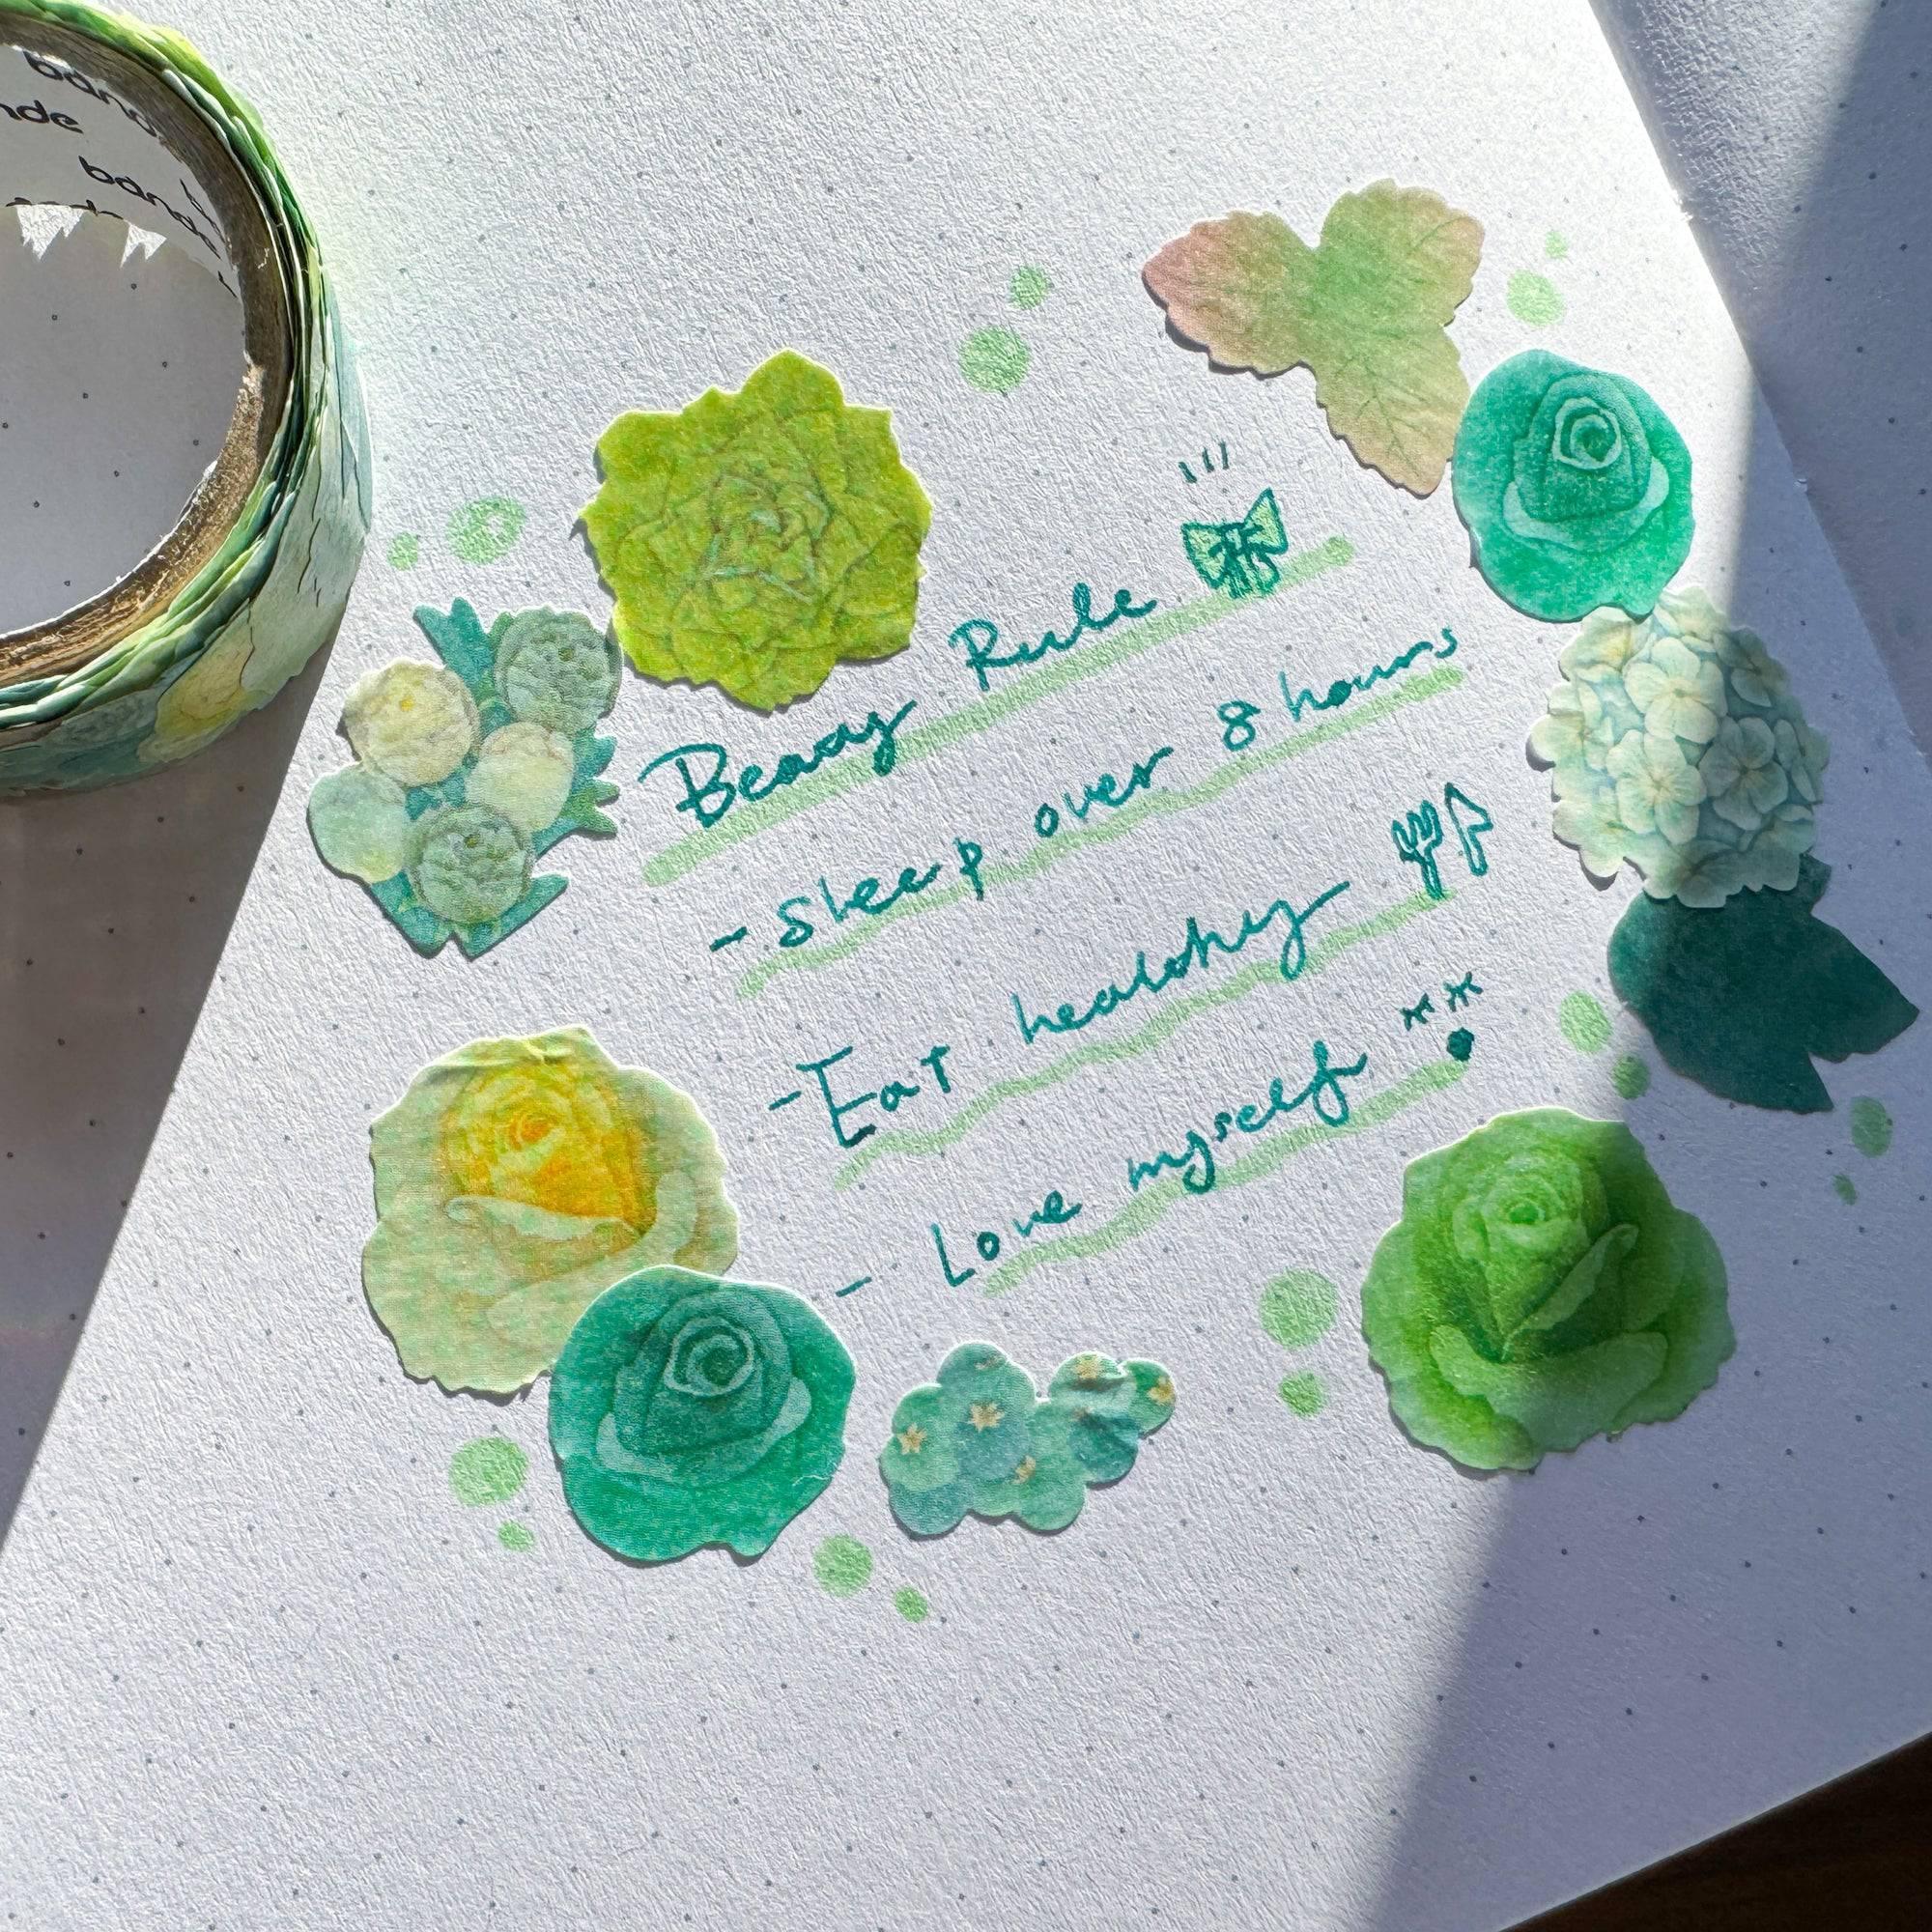 bande
nde
bande
Beauy Rule
- Sleep over 8 hours
- Eat healthy
- Love myself